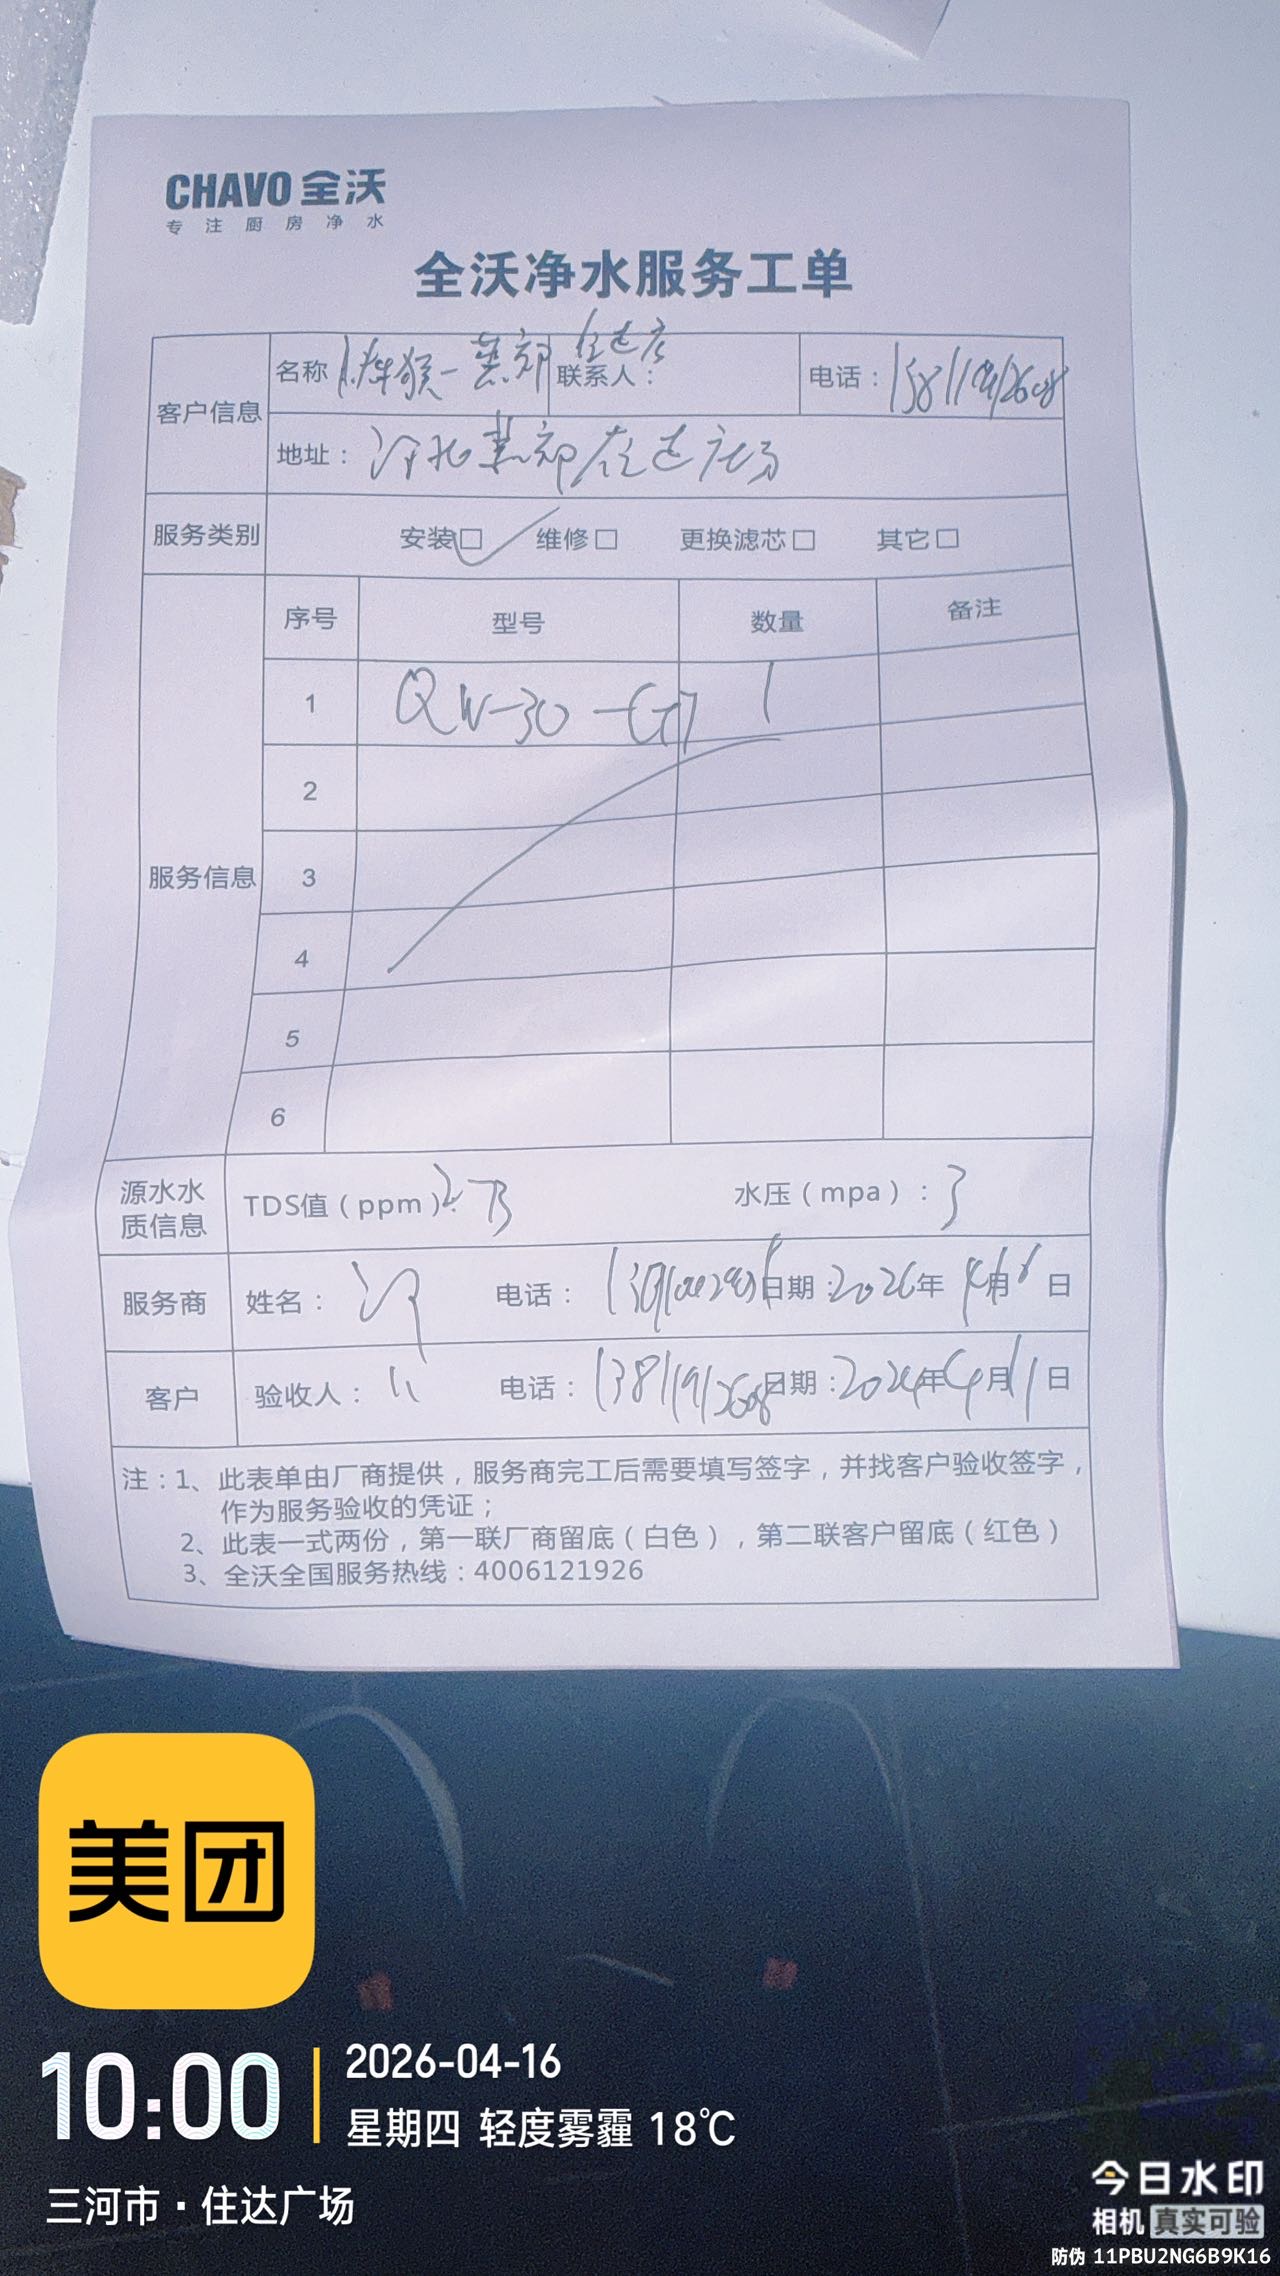 CHAVO 全沃
专注厨房净水
全沃净水服务工单
客户信息
名称
联系人：
住达广
电话：
地址： 河北燕郊住达广场
服务类别 安装□ 维修□ 更换滤芯□ 其它□
服务信息
序号 型号 数量 备注
1 QW-30-G7 1
2
3
4
5
6
源水水质信息 TDS值（ppm）： 水压（mpa）：3
服务商 姓名： 电话： 日期：2026年4月16日
客户 验收人： 电话：13811912608 日期：2026年4月日
注：1、此表单由厂商提供，服务商完工后需要填写签字，并找客户验收签字，
作为服务验收的凭证；
2、此表一式两份，第一联厂商留底（白色），第二联客户留底（红色）
3、全沃全国服务热线：4006121926
美团
10:00
2026-04-16
星期四 轻度雾霾 18℃
三河市·住达广场
今日水印
相机 真实可验
防伪 11PBU2NG6B9K16